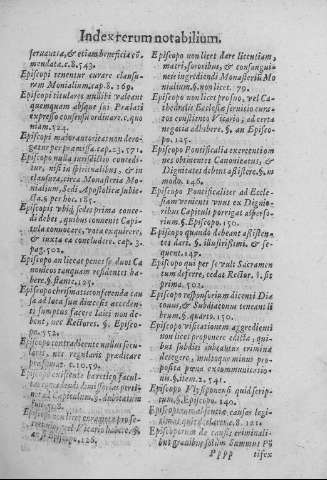 Index rerum notabilium.
seruantia, & etiam beneficia cõ-
mendata. c. 8. 543.
Episcopi tenentur curare clausu-
ram Monialium, cap. 8. 169.
Episcopi titulares nullibi valeant
quemquam absque sui Prælati
expresso consensu ordinare. c. quo
niam. 524.
Episcopi maior autoritas non dero-
gatur per præmissa. cap. 23. 571.
Episcopo nulla iurisdictio concedi-
tur, nisi in spiritualibus, & in
clausura, circa Monasteria Mo-
nialium, Sedi Apostolicæ subie-
cta. §. per hoc. 185.
Episcopo vbiq; sedes prima conce-
di debet, quibus conuenit Capi-
tula conuocare, vota exquirere,
& iuxta ea concludere. cap. 3.
pag. 502.
Episcopo an liceat penes se duos Ca
nonicos tanquam residentes ha-
bere. §. stante. 125.
Episcopo chrismatis conferenda cau
sa ad loca suæ diœcesis acceden-
ti sumptus facere laici non de-
bent, nec Rectores. §. Episco-
po. 552.
Episcopo contradicente nullus secu-
laris, nec regularis prædicare
præsumat. c. 10. 59.
Episcopo existente hæretico facul-
ad Capitulum. §. dubitatum
Episcopo non licet
Vicario habere. §.
126.
Episcopo non licet dare licentiam,
matri, sororibus, & consanguin-
eis ingrediendi Monasteriũ Mo
nialium. §. non licet. 79.
Episcopo non licet profuo, vel Ca
thedralis Ecclesiæ seruitio cura-
tos constituto Vicario, ad certa
negotia adhibere. §. an Episco-
po. 125.
Episcopo Pontificalia exercentiom
nes obtinentes Canonicatus, &
Dignitates debent assistere. §. in
modo. 146.
Episcopo Pontificaliter ad Eccle-
siam venienti vnus ex Dignio-
ribus Capituli porrigat aspersor-
rium. §. Episcopo. 150.
Episcopo quando debeant assisten-
tes dari. §. illustrissimi, & se-
quent. 147.
Episcopo qui per se vult Sacramen
tum deferre, cedat Rector. l. sic
prima. 502.
Episcopo responsorium dicenti Dia
conus, & Subdiaconus teneant li
brum. §. quarto. 150.
Episcopo visitationem aggredienti
non licet proponere edicta, qui-
bus subditi iubeantur crimina
detegere, multoque minus pro-
posita pœna excommunicatio-
nis. §. item 2. 541.
Episcopo Vlyssiponensi quid scrip-
tum. §. Episcopo. 140.
Episcoporum
bus grauibus solum Summus Põ
Pppp tifex